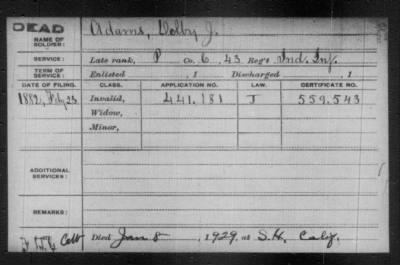 DEAD
NAME OF SOLDIER: Adams, Dolby J.
SERVICE: Late rank, P Co. G, 43 Reg't Ind. Inf.
TERM OF SERVICE: Enlisted , 1 Discharged , 1
DATE OF FILING. CLASS. APPLICATION NO. LAW. CERTIFICATE NO.
1882, Feb 23 Invalid, 441.181 J 559.543
Widow,
Minor,
ADDITIONAL SERVICES:
REMARKS:
Died Jan 8, 1929, at S.H. Calif.